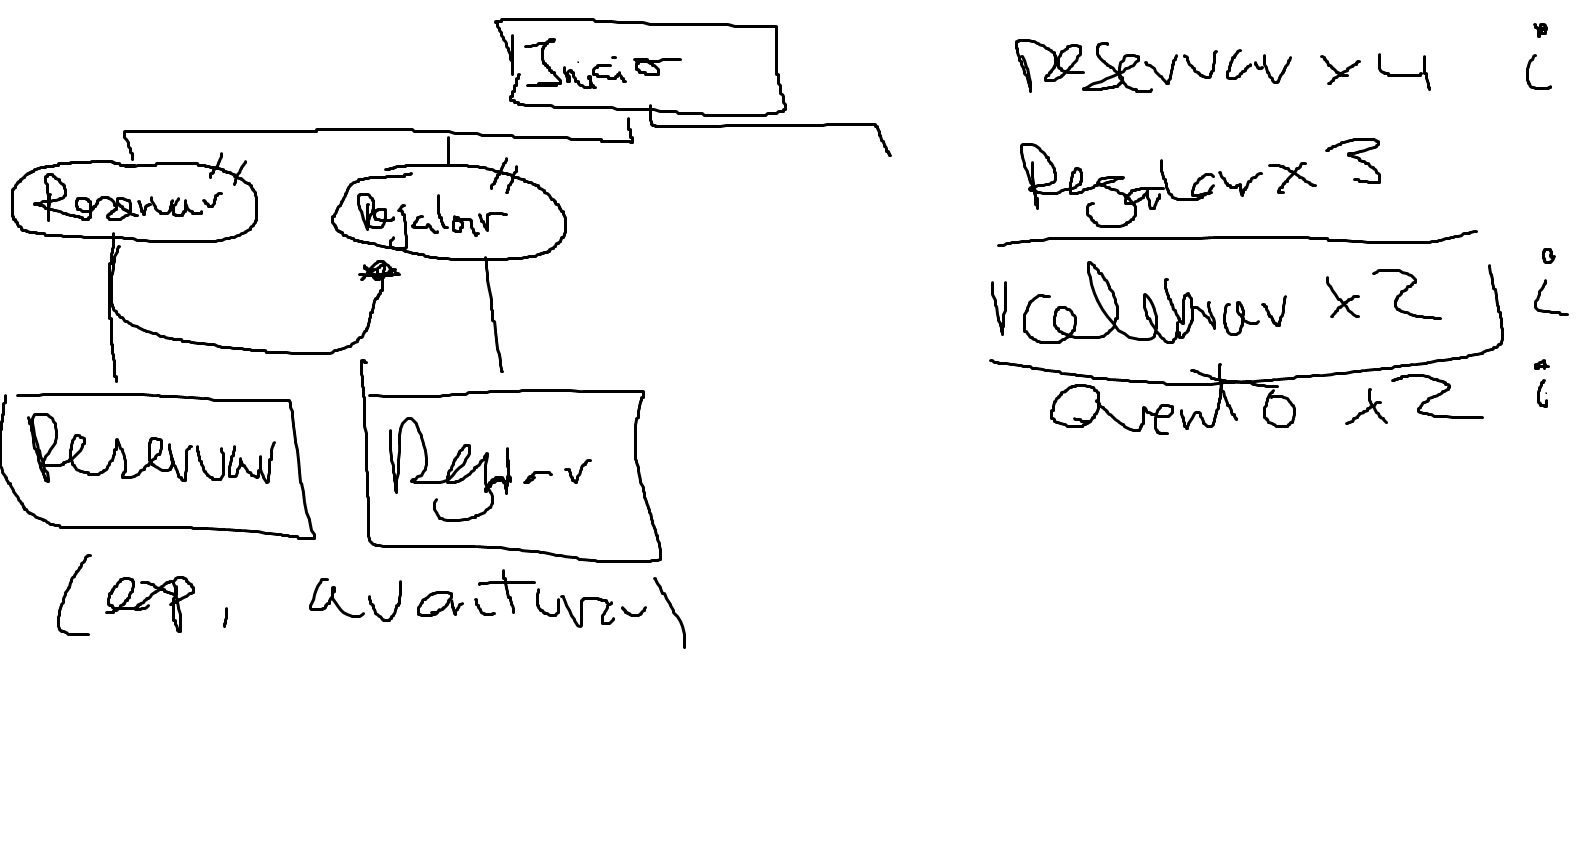 Inicio
Reservar "
Regalar "
Reservar
Regalar
(exp. aventura)
Reservar x 4 i
Regalar x 3
celebrar x 2 i
evento x 2 i